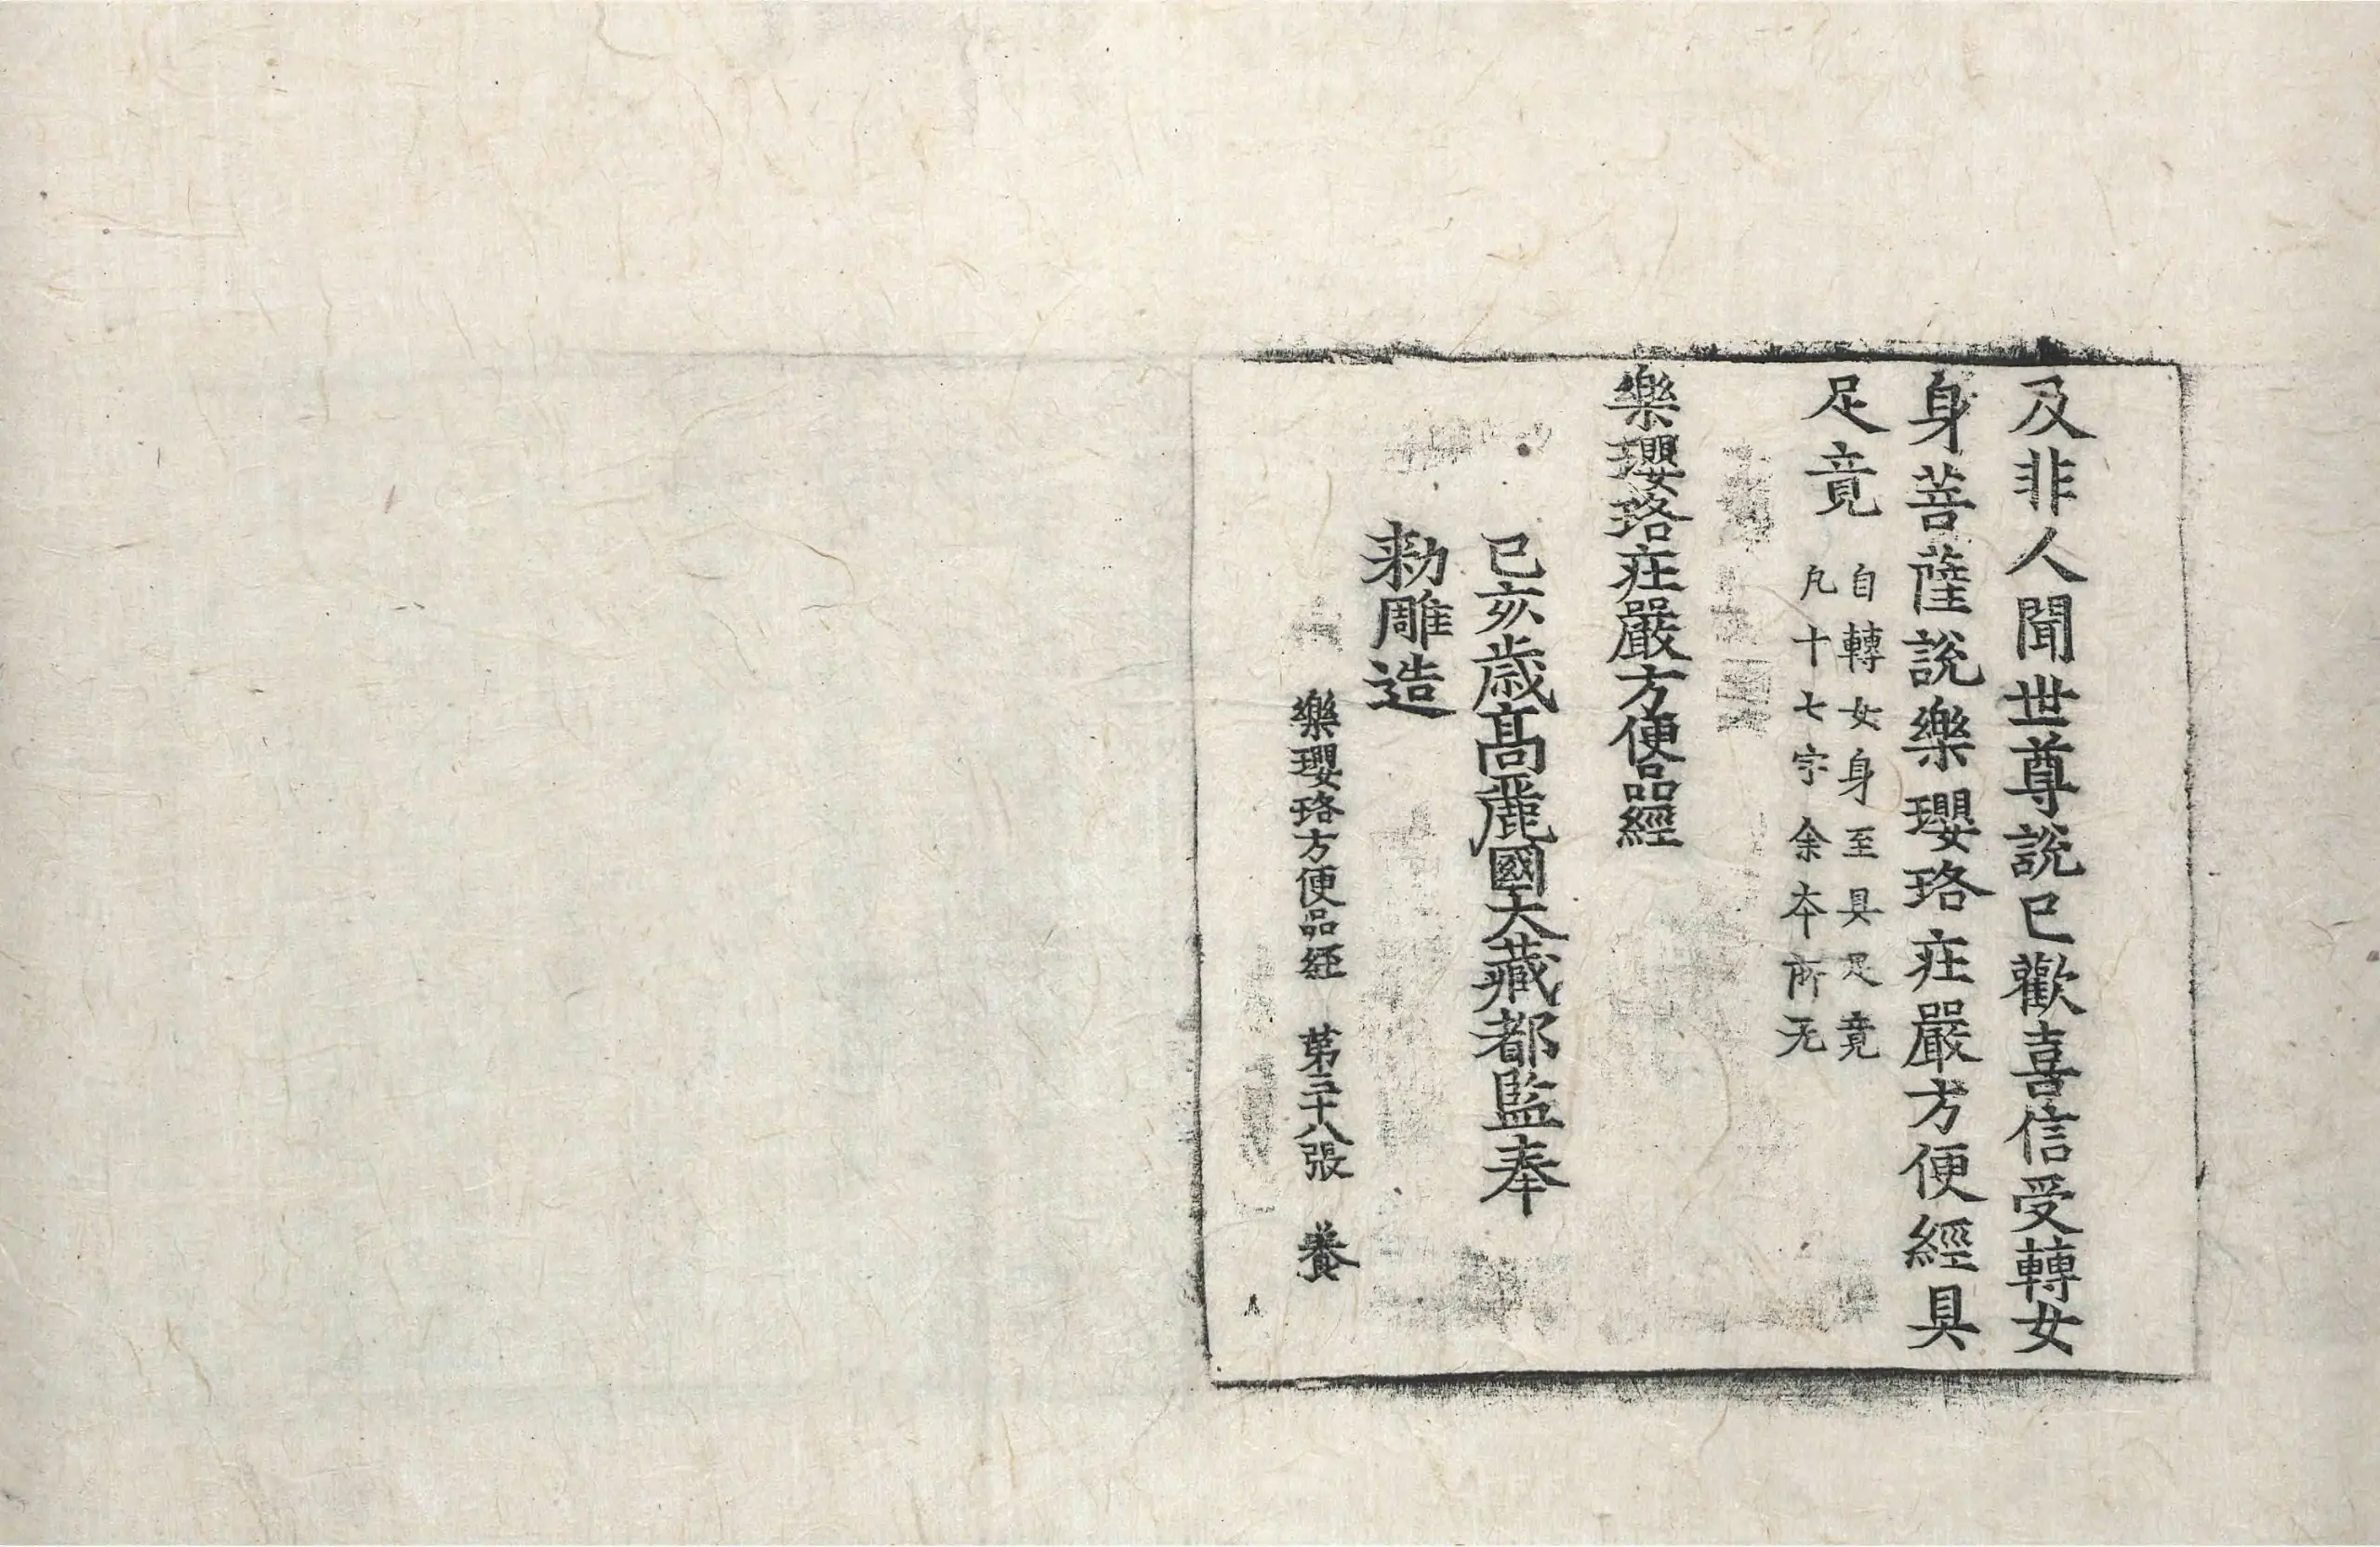 及非人聞世尊說已歡喜信受轉女
身菩薩說樂瓔珞疰嚴方便經具
足竟
自轉女身至具足竟
凡十七字余本所无
樂瓔珞疰嚴方便品經
己亥歲高麗國大藏都監奉
勅雕造
樂瓔珞方便品經 第三十八張 養